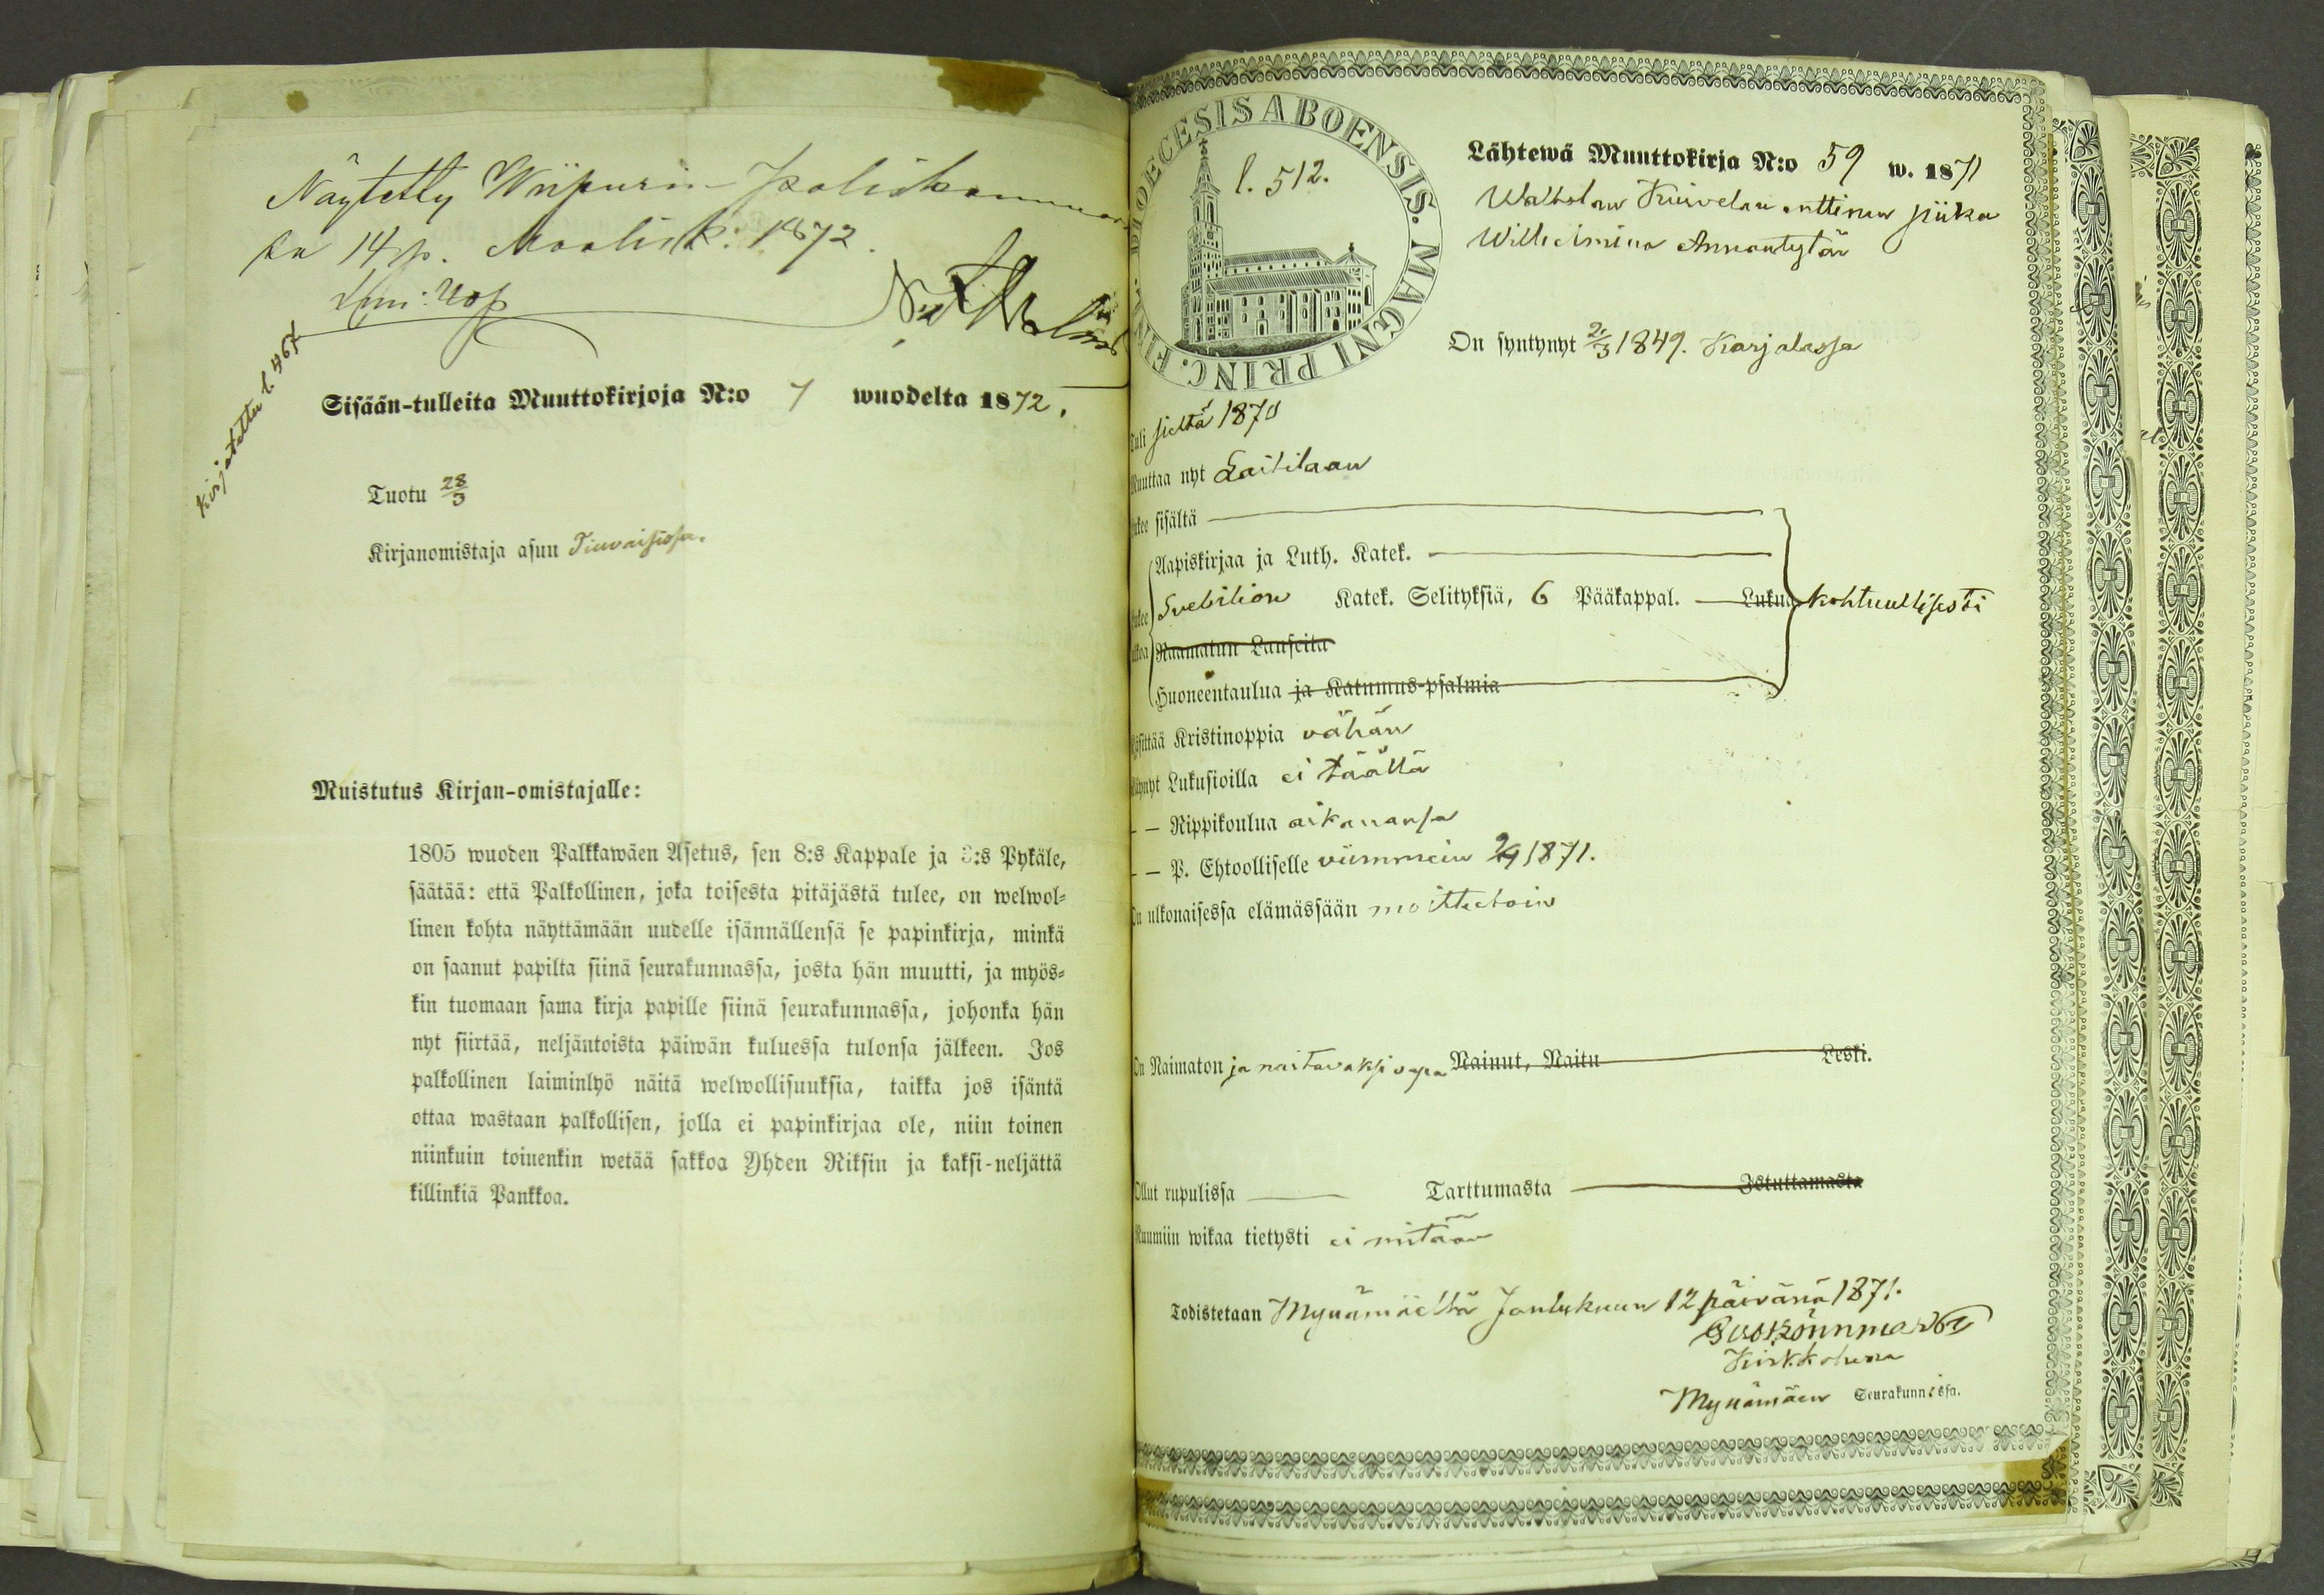 Näytetty Wiipurin
sa 14 p. Maalisk: 1872.
Kirjotettu l. 467
Sisään-tulleita Muuttokirjoja N:o 7 wuodelta 1872.
Tuotu 28/3
Kirjanomistaja asuu
Muistutus Kirjan-omistajalle:
1805 wuoden Palkkawäen Asetus, sen 8:s Kappale ja 3:s Pykäle,
säätää: että Palkollinen, joka toisesta pitäjästä tulee, on welwol-
linen kohta näyttämään uudelle isännällensä se papinkirja, minkä
on saanut papilta siinä seurakunnassa, josta hän muutti, ja myös-
kin tuomaan sama kirja papille siinä seurakunnassa, johonka hän
nyt siirtää, neljäntoista päiwän kuluessa tulonsa jälkeen. Jos
palkollinen laiminlyö näitä welwollisuuksia, taikka jos isäntä
ottaa wastaan palkollisen, jolla ei papinkirjaa ole, niin toinen
niinkuin toinenkin wetää sakkoa Yhden Riksin ja kaksi-neljättä
killinkiä Pankkoa.
DIOECESIS ABOENSIS. MAGNI PRINC. FINL.
l. 512.
Lähtewä Muuttokirja N:o 59 w. 1871
piika
Wilhelmina Annantytär
On syntynyt 2/3 1849. Karjalassa
Tuli sieltä 1870
Muuttaa nyt Laitilaan
Lukee sisältä
Aapiskirjaa ja Luth. Katek.
Lukee ulkoa Svebilion Katek. Selityksiä, 6 Pääkappal. Lukua kohtuullisesti
Raamatun Lauseita
Huoneentaulua ja Katumus-psalmia
Käsittää Kristinoppia vähän
Käynyt Lukusioilla ei täällä
— — Rippikoulua aikanansa
— — P. Ehtoolliselle viimmein 1871.
On ulkonaisessa elämässään moittectoin
On Naimaton ja naitavaksi vapa Nainut, Naitu Leski.
Ollut rupulissa Tarttumasta Istuttamasta
Ruumiin wikaa tietysti ei mitään
Todistetaan Mynämäeltä Joulukuun 12 päivänä 1871.
Kirkkoherra
Mynämäen Seurakunnissa.